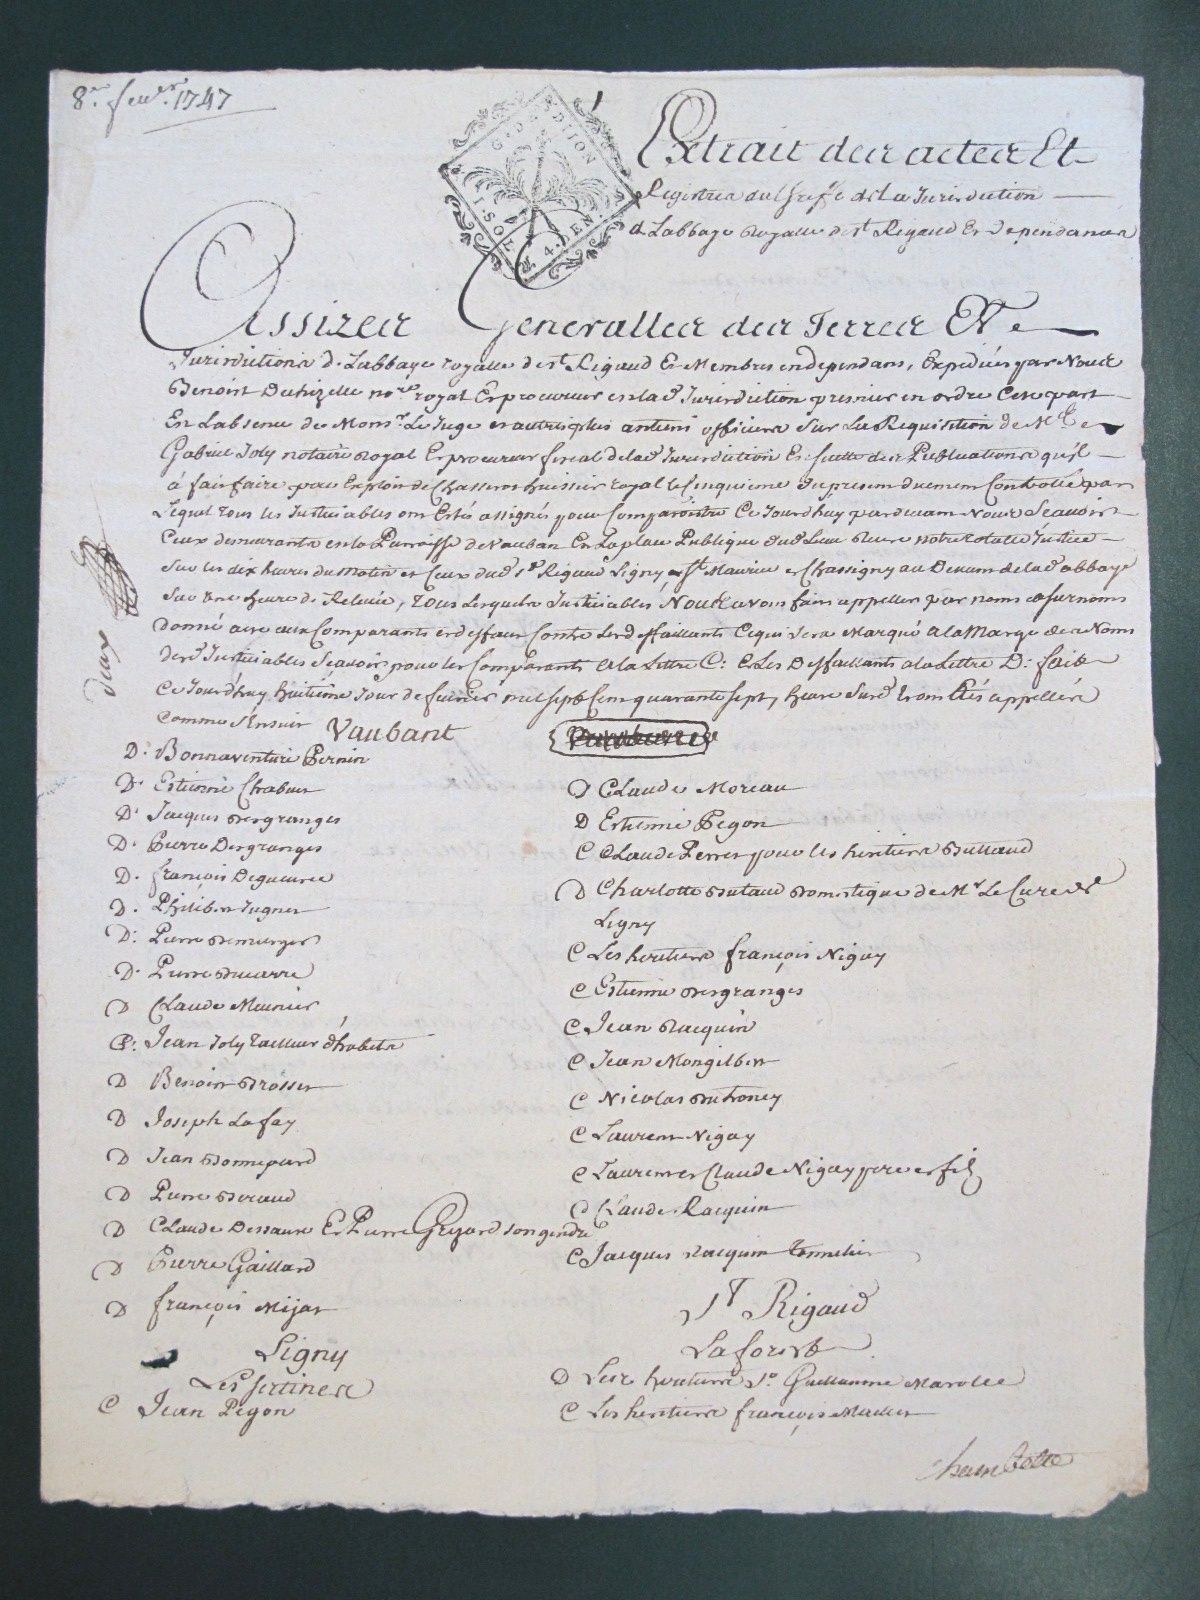 8e fevr. 1747
G. D. DE DIJON
1. SOL 4. DEN.
Extrait des actes Et
Registres du Greffe de la Jurisdiction
de Labbaye Royalle de st Rigaud Et dependances
Assizes Generalles des Terres Et
Jurisdictions de Labbaye royalle de st Rigaud Et Membres en dependans, Expediées par Nous
Benoist Duhizelle nore. royal Et procureur en lad Jurisdiction premier en ordre Cete part
En Labsence de Monsr. Le Juge et autres plus antiens officiers Sur La Requisition de Me
Gabriel Joly notaire Royal Et procureur fiscal de lad Jurisdiction Et suitte des Publications qu'il
à fait faire par Exploit de Chassens huissier royal le Cinquieme du present duement Controllé par
Lequel tous les Justiciables ont Estés assignés pour Comparoistre Ce Jourdhuy pardevant Nous Scavoir
Ceux demeurants en la Parroisse de Vauban En La place Publique dud Lieu Notre Justice
Sur les dix heures du Matin et Ceux dud st Rigaud Ligny et St Maurice et Chassigny au Devant de lad abbaye
Sur Une heure de Relevée, tous Lesquels Justiciables Nous avons fait appeller par noms et surnoms
donné acte aux Comparants et deffaut Contre Les deffaillants Ce qui sera Marqué a la Marge des Noms
desd Justiciables Scavoir pour les Comparants a la Lettre C: Et Les Deffaillants a la Lettre D: fait
Ce Jourdhuy huitieme Jour de fevrier mil sept Cent quarante sept, heure Susd Et ont Etés appellés
Comme sensuit Vaubant
deux
D. Bonnaventure Pernin
D. Estienne Chabuet
D. Jacques Desgranges
D. Pierre Desgranges
D. françois Degueurce
D. Philibert Jugnet
D. Pierre Demurger
D. Pierre Ducarre
D Claude Meunier
C: Jean Joly tailleur d'habits
D Benoist Brosset
D Joseph Lafay
D Jean Bonnepard
D Pierre Beraud
D Claude Dessaure Et Pierre Gayard son gendre
D Pierre Gaillard
D françois Mijat
Ligny
Les sertines
C Jean Pegon
D Claude Moreau
D Estienne Pegon
C Claude Perret pour les heritiers Buttaud
D Charlotte Butaud Domestique de Mr Le Cure de
Ligny
C Les heritiers françois Nigay
C Estienne Desgranges
C Jean Racquin
C Jean Mongilbert
C Nicolas Duthoney
C Laurent Nigay
C Laurent et Claude Nigay pere et fils
C Claude Racquin
C Jacques Racquin tonnelier
St Rigaud
La forest
D Les heritiers Sr Guillaume Marolle
C Les heritiers françois Mallet